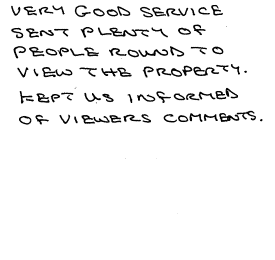 VERY GOOD SERVICE
SENT PLENTY OF
PEOPLE ROUND TO
VIEW THE PROPERTY.
KEPT US INFORMED
OF VIEWERS COMMENTS.